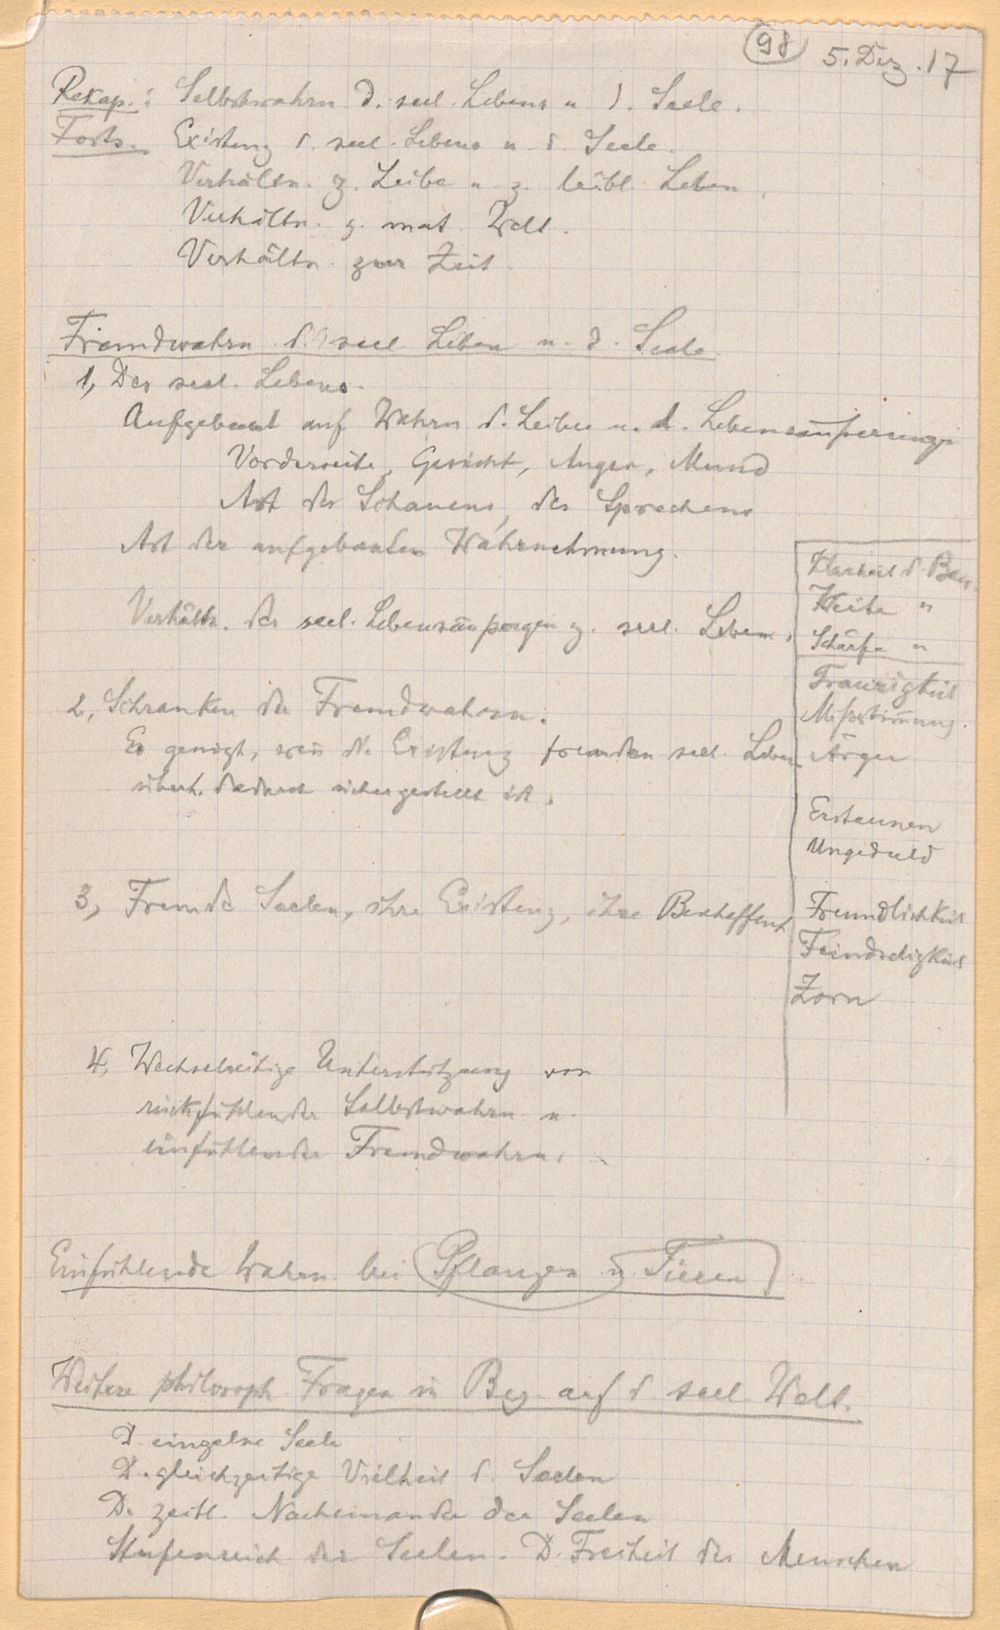 98 5. Dez. 17
Rekap.: Selbstwahrn d. seel. Lebens u d. Seele.
Forts. Existenz d. seel. Lebens u. d. Seele.
Verhältn. z. Leibe u. z. leibl. Leben.
Verhältn. z. mat. Welt.
Verhältn. zur Zeit.
Fremdwahrn. d. seel. Leben u. d. Seele
1, Des seel. Lebens.
Aufgebaut auf Wahrn d. Leibes u. d. Lebensäußerungn
Vorderseite, Gesicht, Augen, Mund
Art des Schauens, des Sprechens
Art der aufgebauten Wahrnehmung.
Verhältn. der seel. Lebensäußergen z. seel. Leben.
2, Schranken der Fremdwahrn.
Es genügt, wenn die Existenz fremden seel. Leben
überh. dadurch sichergestellt ist.
3, Fremde Seelen, ihre Existenz, ihre Beschaffenh
4, Wechselseitige Unterstützung von
rückfühlender Selbstwahrn. u.
einfühlender Fremdwahrn.
Klarheit d. Bew.
Weite "
Schärfe "
Traurigkeit
Mißstimmung.
Ärger
Erstaunen
Ungeduld
Freundlichkeit
Feindseligkeit
Zorn
Einfühlende Wahrn bei Pflanzen u Tieren
Weitere philosoph Fragen in Bez. auf d seel. Welt.
D. einzelne Seele
D. gleichzeitige Vielheit d. Seelen
D. zeitl. Nacheinander der Seelen
Stufenreich der Seelen. D. Freiheit des Menschen